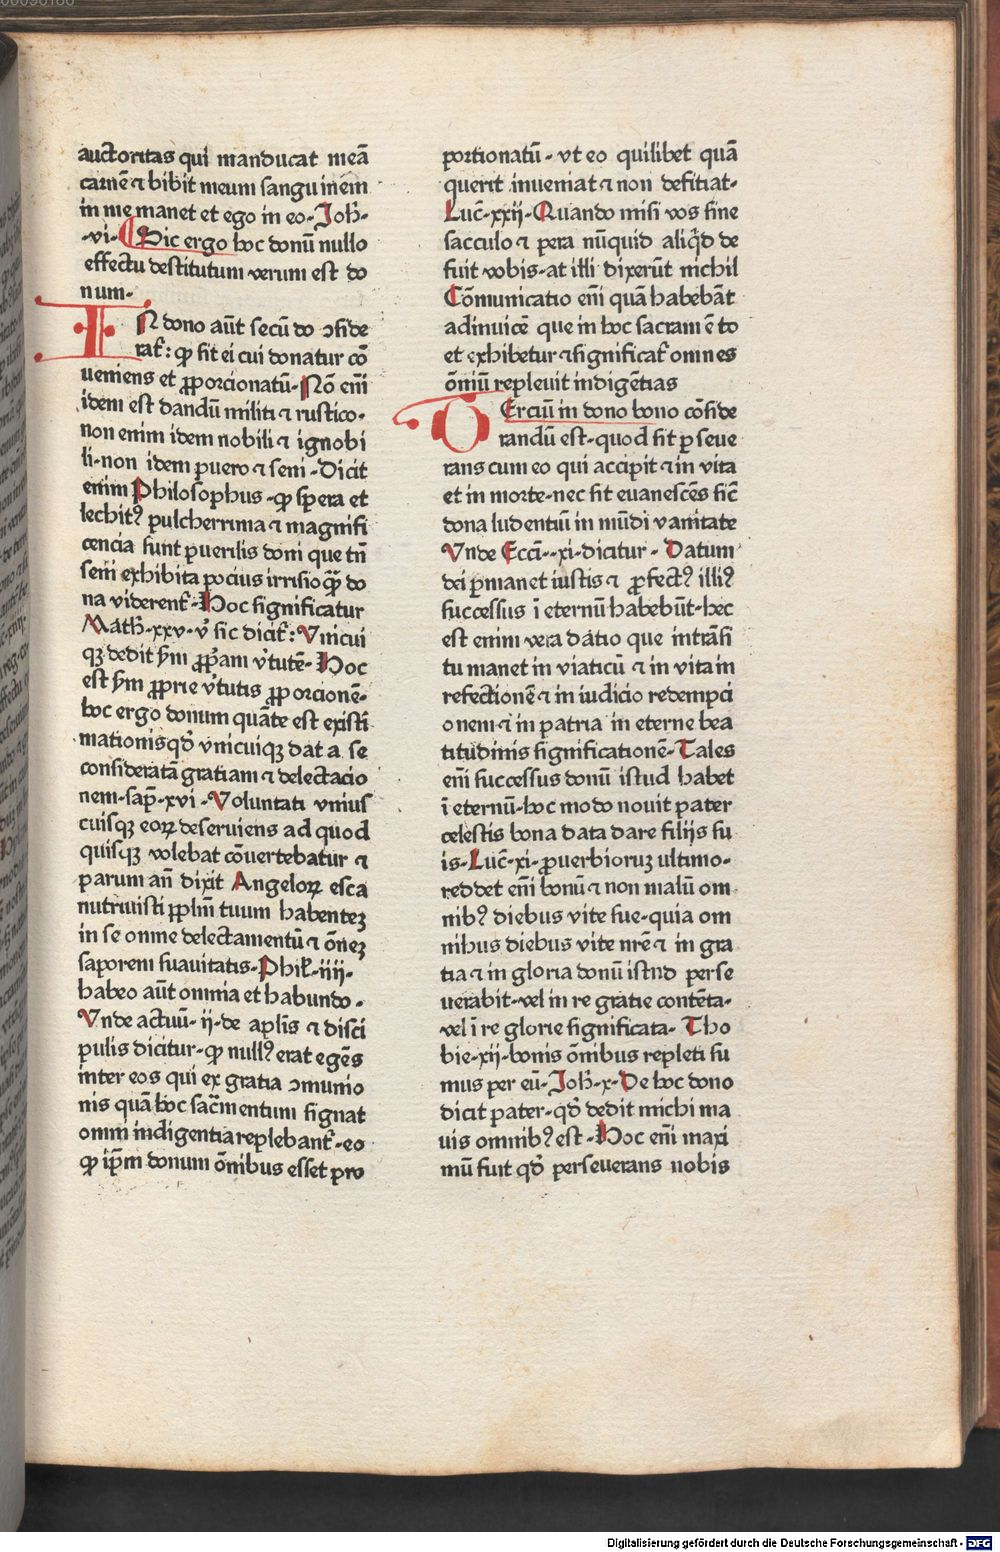 auctoritas qui manducat meā
carnē ⁊ bibit meum sanguinem
in me manet et ego in eo. Joh̄.
.vi. Sic ergo hoc donū nullo
effectu destitutum verum est do
num.
IN dono aūt secū do ↄside
rat̄: ꝙ sit ei cui donatur cō
ueniens et ꝓporcionatū. Nō em̄
idem est dandū militi ⁊ rustico.
non enim idem nobili ⁊ ignobi
li. non idem puero ⁊ seni. Dicit
enim Philosophus. ꝙ spera et
lechitꝰ pulcherrima ⁊ magnifi
cencia sunt puerilis doni que tn̄
seni exhibita pocius irrisio q̄ do
na viderent̄. Hoc significatur
Math̄. xxv. v̄ sic dicit̄: Vnicui
qꝫ dedit s̄m ꝓpͥam v̄tutē. Hoc
est s̄m ꝓprie v̄tutis ꝓporcionē.
hoc ergo donum quāte est existi
mationis qd̓ vnicuiqꝫ dat a se
consideratā gratiam ⁊ delectacio
nem. sap̄. xvi. Voluntati vnius
cuisqꝫ eoꝝ deseruiens ad quod
quisqꝫ volebat cōuertebatur ⁊
parum an̄ dixit Angeloꝝ esca
nutriuisti pplm̄ tuum habenteꝫ
in se omne delectamentū ⁊ ōneꝫ
saporem suauitatis. Phil̄. iiij.
habeo aūt omnia et habundo.
Vnde actuū. ij. de aplīs ⁊ disci
pulis dicitur. ꝙ nullꝰ erat egēs
inter eos qui ex gratia ↄmunio
nis quā hoc sac̄mentum signat
omni indigentia replebant̄. eo
ꝙ ip̄m donum ōnibus esset pro
portionatū. vt eo quilibet quā
querit inueniat ⁊ non defitiat.
Luc̄. xxij. Quando misi vos sine
sacculo ⁊ pera nūquid aliq̇d de
fuit vobis. at illi dixerūt nichil
Cōmunicatio em̄ quā habebāt
adinuicē que in hoc sacram ē to
et exhibetur ⁊ significat̄ omnes
ōniū repleuit indigētias
TErciū in dono bono cōside
randū est. quod sit ꝑseue
rans cum eo qui accipit ⁊ in vita
et in morte. nec sit euanescēs sic̄
dona ludentiū in mūdi vanitate
Vnde Ecci̅. .xi. dicitur. Datum
dei ꝑmanet iustis ⁊ ꝓfectꝰ illiꝰ
successus ī eternū habebūt. hec
est enim vera datio que intrāsi
tu manet in viaticū ⁊ in vita in
refectionē ⁊ in iudicio redempci
onem ⁊ in patria in eterne bea
titudinis significationē. Tales
em̄ successus donū istud habet
ī eternū. hoc modo nouit pater
celestis bona data dare filijs su
is. Luc̄. xi. ꝓuerbioruꝫ ultimo.
reddet em̄ bonū ⁊ non malū om
nibꝰ diebus vite sue. quia om
nibus diebus vite nr̄e ⁊ in gra
tia ⁊ in gloria donū istud perse
uerabit. vel in re gratie contēta.
vel ī re glorie significata. Tho
bie. xij. bonis ōnibus repleti su
mus per eū. Joh̄. x. De hoc dono
dicit pater. qd̓ dedit michi ma
uis omnibꝰ est. Hoc em̄ maxi
mū fuit qd̓ perseuerans nobis
Digitalisierung gefördert durch die Deutsche Forschungsgemeinschaft - DFG